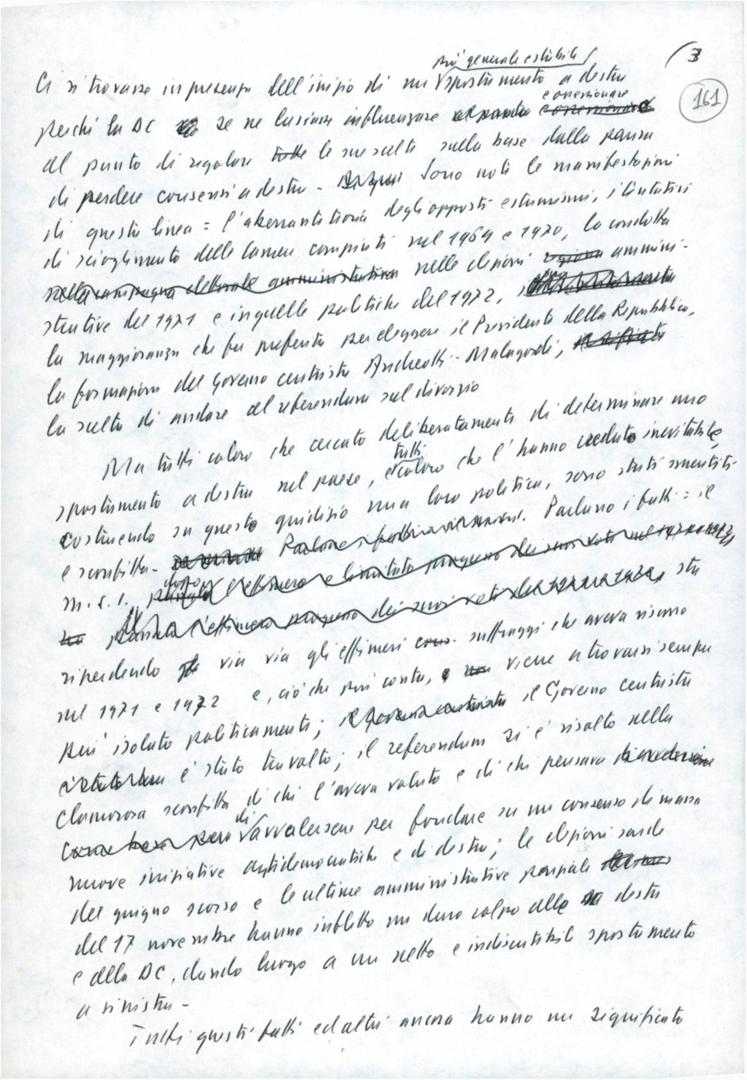 (3
161
più generale e stabile
Ci si trovasse in presenza dell'inizio di un spostamento a destra
perché la DC se ne lasciasse influenzare e condizionare
al punto di regolare le sue scelte sulla base della paura
di perdere consensi a destra - Sono note le manifestazioni
di questa linea: l'aberrante teoria degli opposti estremismi, i tentativi
di scioglimento delle Camere compiuti nel 1969 e 1970, la condotta
nelle elezioni ammini-
strative del 1971 e in quelle politiche del 1972,
la maggioranza che fu preferita per eleggere il Presidente della Repubblica,
la formazione del Governo centrista Andreotti-Malagodi,
la scelta di andare al referendum sul divorzio
Ma tutti coloro che cercato deliberatamente di determinare uno
spostamento a destra nel paese, e tutti coloro che l'hanno creduto inevitabile,
costruendo su questo giudizio una loro politica, sono stati smentiti
e sconfitti - Parlano i fatti: il
M.S.I.
sta
riperdendo via via gli effimeri suffragi che aveva riscosso
nel 1971 e 1972 e, ciò che più conta, viene a trovarsi sempre
più isolato politicamente; il Governo centrista
è stato travolto; il referendum si è risolto nella
clamorosa sconfitta di chi l'aveva voluto e di chi pensava
di avvalersene per fondare su un consenso di massa
nuove iniziative antidemocratiche e di destra; le elezioni sarde
del giugno scorso e le ultime amministrative parziali
del 17 novembre hanno inflitto un duro colpo alla destra
e alla DC, dando luogo a un netto e indiscutibile spostamento
a sinistra -
Tutti questi fatti ed altri ancora hanno un significato